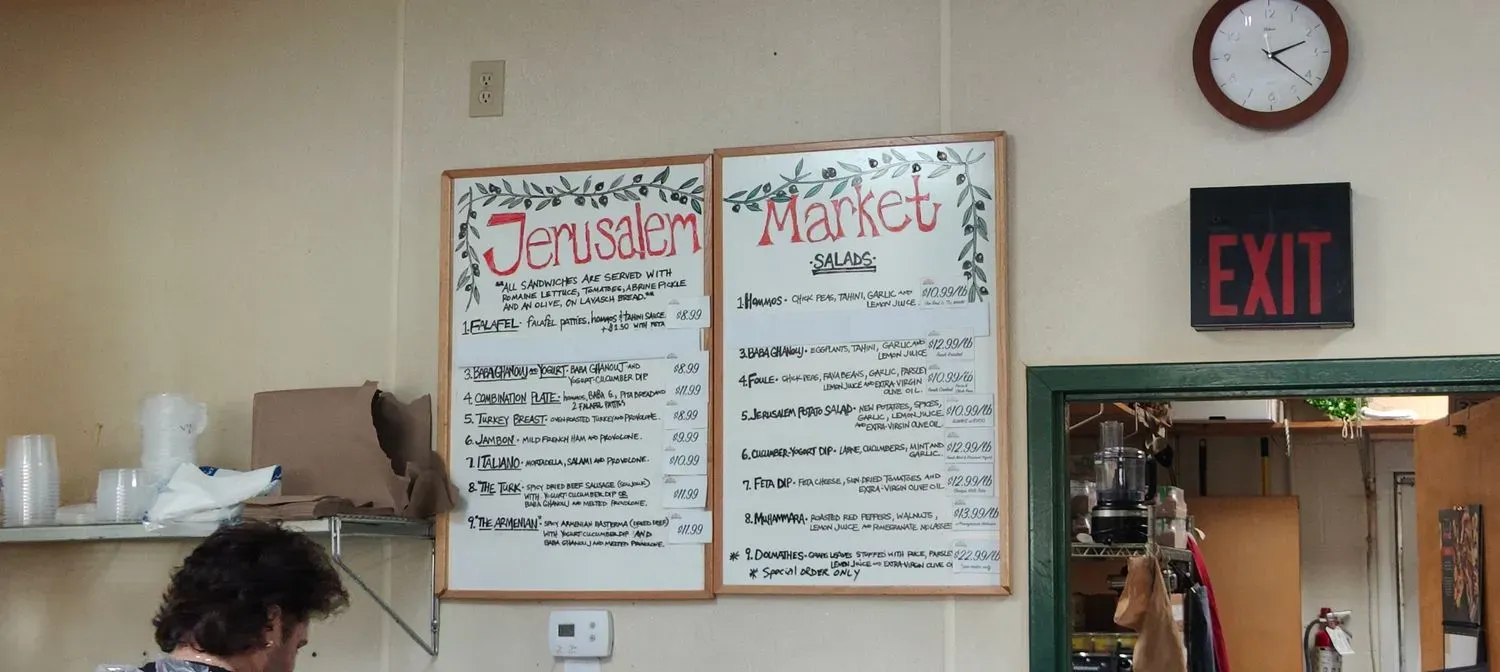 Jerusalem
"ALL SANDWICHES ARE SERVED WITH
ROMAINE LETTUCE, TOMATOES, A BRINE PICKLE
AND AN OLIVE, ON LAVASCH BREAD."
1. FALAFEL - FALAFEL PATTIES, HOMMOS & TAHINI SAUCE $8.99
+ $1.50 WITH FETA
3. BABA GHANOUJ AND YOGURT - BABA GHANOUJ AND $8.99
YOGURT-CUCUMBER DIP
4. COMBINATION PLATE - HOMMOS, BABA G, PITA BREAD AND $11.99
2 FALAFEL PATTIES
5. TURKEY BREAST - OVEN ROASTED TURKEY AND PROVOLONE. $8.99
6. JAMBON - MILD FRENCH HAM AND PROVOLONE. $9.99
7. ITALIANO - MORTADELLA, SALAMI AND PROVOLONE. $10.99
8. "THE TURK - SPICY DRIED BEEF SAUSAGE (SOUJOUK)
WITH YOGURT CUCUMBER DIP OR $11.99
BABA GHANOUJ AND MELTED PROVOLONE.
9. "THE ARMENIAN" - SPICY ARMENIAN BASTERMA (DRIED BEEF)
WITH YOGURT-CUCUMBER DIP AND $11.99
BABA GHANOUJ AND MELTED PROVOLONE.
Market
· SALADS ·
1. HOMMOS - CHICK PEAS, TAHINI, GARLIC AND $10.99/lb
LEMON JUICE.
3. BABA GHANOUJ - EGGPLANTS, TAHINI, GARLIC AND $12.99/lb
LEMON JUICE
4. FOULE - CHICK PEAS, FAVA BEANS, GARLIC, PARSLEY $10.99/lb
LEMON JUICE AND EXTRA-VIRGIN
OLIVE OIL.
5. JERUSALEM POTATO SALAD - NEW POTATOES, SPICES, $10.99/lb
GARLIC, LEMON JUICE
AND EXTRA-VIRGIN OLIVE OIL
6. CUCUMBER-YOGURT DIP - CUCUMBERS, MINT AND $12.99/lb
GARLIC.
7. FETA DIP - FETA CHEESE, SUN-DRIED TOMATOES AND $12.99/lb
EXTRA-VIRGIN OLIVE OIL
8. MUHAMMARA - ROASTED RED PEPPERS, WALNUTS, $13.99/lb
LEMON JUICE AND POMEGRANATE MOLASSES
* 9. DOLMATHES - GRAPE LEAVES STUFFED WITH RICE, PARSLE $22.99/lb
LEMON JUICE AND EXTRA-VIRGIN OLIVE O
* Special ORDER ONLY
12
EXIT